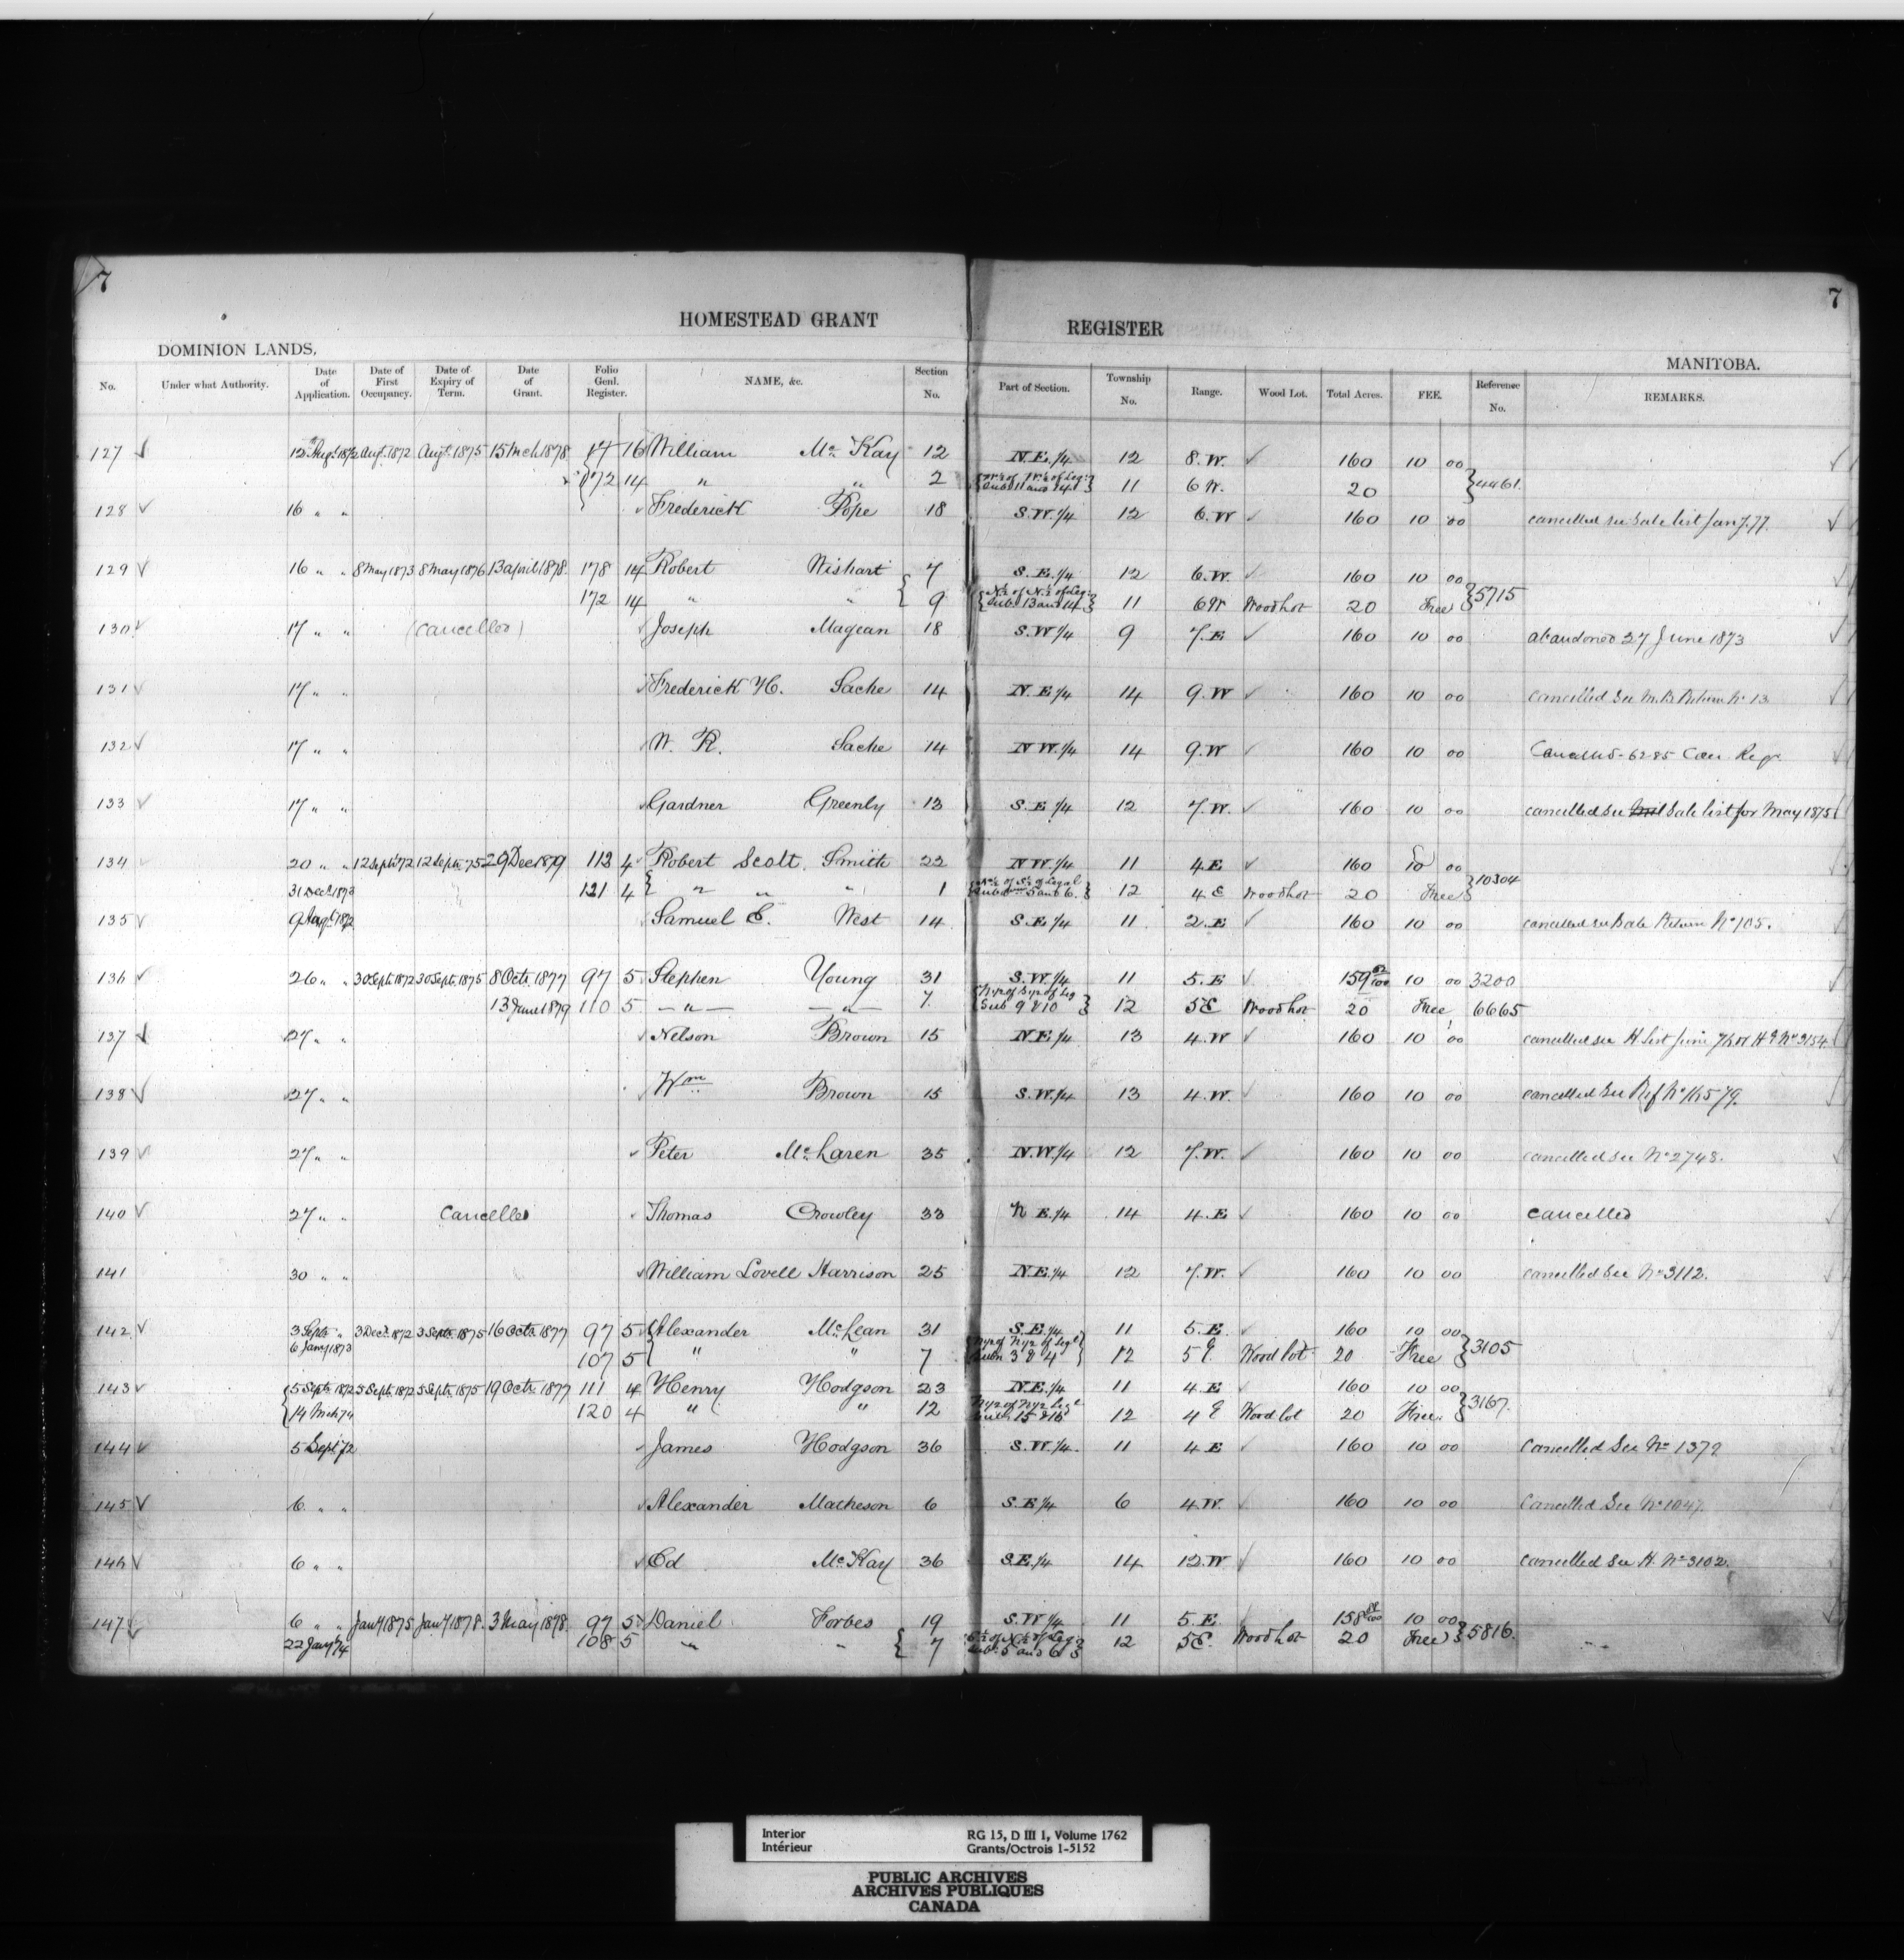 7
7
HOMESTEAD GRANT REGISTER
DOMINION LANDS.
MANITOBA.
No. Under what Authority. Date of Application. Date of First Occupancy. Date of Expiry of Term. Date of Grant. Folio Genl. Register. NAME, &c. Section No. Part of Section. Township No. Range. Wood Lot. Total Acres. FEE. Reference No. REMARKS.
127 ✓ 12th Augt. 1872 Augt. 1872 Augt. 1875 15 Mch 1878 16 William Mc Kay 12 N.E. ¼ 12 8.W. ✓ 160 10 00
172 14 " " 2 11 6 W. 20 4461
128 ✓ 16 " " Frederick Pope 18 S.W. ¼ 12 6.W ✓ 160 10 00 cancelled see Sale list Jany. 77.
129 ✓ 16 " " 8 May 1873 8 May 1876 13 April 1878. 178 14 Robert Wishart 7 S.E. ¼ 12 6.W. ✓ 160 10 00
172 14 " " 9 { N½ of N½ of Leg: Sub: 13 and 14 } 11 6 W Wood Lot 20 Free 5715
130 ✓ 17 " " (Cancelled) Joseph Magean 18 S.W ¼ 9 7.E ✓ 160 10 00 abandoned 27 June 1873
131 ✓ 17 " " Frederick H. Sache 14 N.E ¼ 14 9.W ✓ 160 10 00 cancelled See M.B. Return No 13
132 ✓ 17 " " W. R. Sache 14 N W. ¼ 14 9.W ✓ 160 10 00 Cancelled - 6285 Can Regr.
133 ✓ 17 " " Gardner Greenly 13 S.E ¼ 12 7.W. ✓ 160 10 00 cancelled see Sale list for May 1875
134 20 " " 12 Sept. 72 12 Sept. 75 29 Dec 1879 113 4 Robert Scott. Smith 22 N W. ¼ 11 4 E ✓ 160 10 00
31 Decr. 1873 121 4 " " " 1 { N½ of S½ of Legal Subdn 5 and 6. } 12 4 E Wood Lot 20 Free 10304
135 ✓ 9 Augt. 1872 Samuel E. West 14 S.E ¼ 11 2.E ✓ 160 10 00 cancelled see Sale Return No 105.
136 ✓ 26 " " 30 Sept. 1872 30 Sept. 1875 8 Octr. 1877 97 5 Stephen Young 31 S.W. ¼ 11 5.E ✓ 159 10 00 3200
13 June 1879 110 5 — " — — " — 7 { N½ of S½ of Leg Sub 9 & 10 } 12 5 E Wood Lot 20 Free 6665
137 ✓ 27 " " Nelson Brown 15 N.E ¼ 13 4.W ✓ 160 10 00 cancelled see H list June
138 ✓ 27 " " Wm Brown 15 S.W. ¼ 13 4.W. ✓ 160 10 00 cancelled See Ref No 16579.
139 ✓ 27 " " Peter Mc Laren 35 N.W. ¼ 12 7.W. ✓ 160 10 00 cancelled see No 2748.
140 ✓ 27 " " Cancelled Thomas Crowley 33 N E. ¼ 14 4.E ✓ 160 10 00 cancelled
141 30 " " William Lovell Harrison 25 N.E. ¼ 12 7.W. ✓ 160 10 00 cancelled See No 3112.
142 ✓ 3 Sept. " 3 Decr. 1872 3 Sept. 1875 16 Octr. 1877 97 5 Alexander Mc Lean 31 S.E. ¼ 11 5.E. ✓ 160 10 00
6 Jany 1873 107 5 " " 7 { N½ of N½ of Legl Subn 3 & 4 } 12 5 E. Wood lot 20 Free 3105
143 ✓ 5 Sept. 1872 5 Sept. 1872 5 Sept. 1875 19 Octr. 1877 111 4 Henry Hodgson 23 N.E. ¼ 11 4.E ✓ 160 10 00
14 Mch 74 120 4 " " 12 N½ of N½ Legl Subn 15 & 16 12 4 E Wood lot 20 Free 3167.
144 ✓ 5 Sept. 72 James Hodgson 36 S.W. ¼. 11 4 E ✓ 160 10 00 Cancelled See No 1379
145 ✓ 6 " " Alexander Matheson 6 S.E ¼ 6 4.W. ✓ 160 10 00 Cancelled See No 1047.
146 ✓ 6 " " Ed Mc Kay 36 S.E. ¼ 14 12.W ✓ 160 10 00 cancelled See H. No 3102.
147 ✓ 6 " " Jany 1875 Jany 1878. 3 May 1878. 97 5 Daniel Forbes 19 S.W ¼ 11 5.E. 158 10 00
22 Jany 74 108 5 " " 7 S½ of N½ of Leg. Sub: 5 and 6 12 5 E. Wood Lot 20 Free 5816.
Interior RG 15, D III 1, Volume 1762
Intérieur Grants/Octrois 1-5152
PUBLIC ARCHIVES
ARCHIVES PUBLIQUES
CANADA